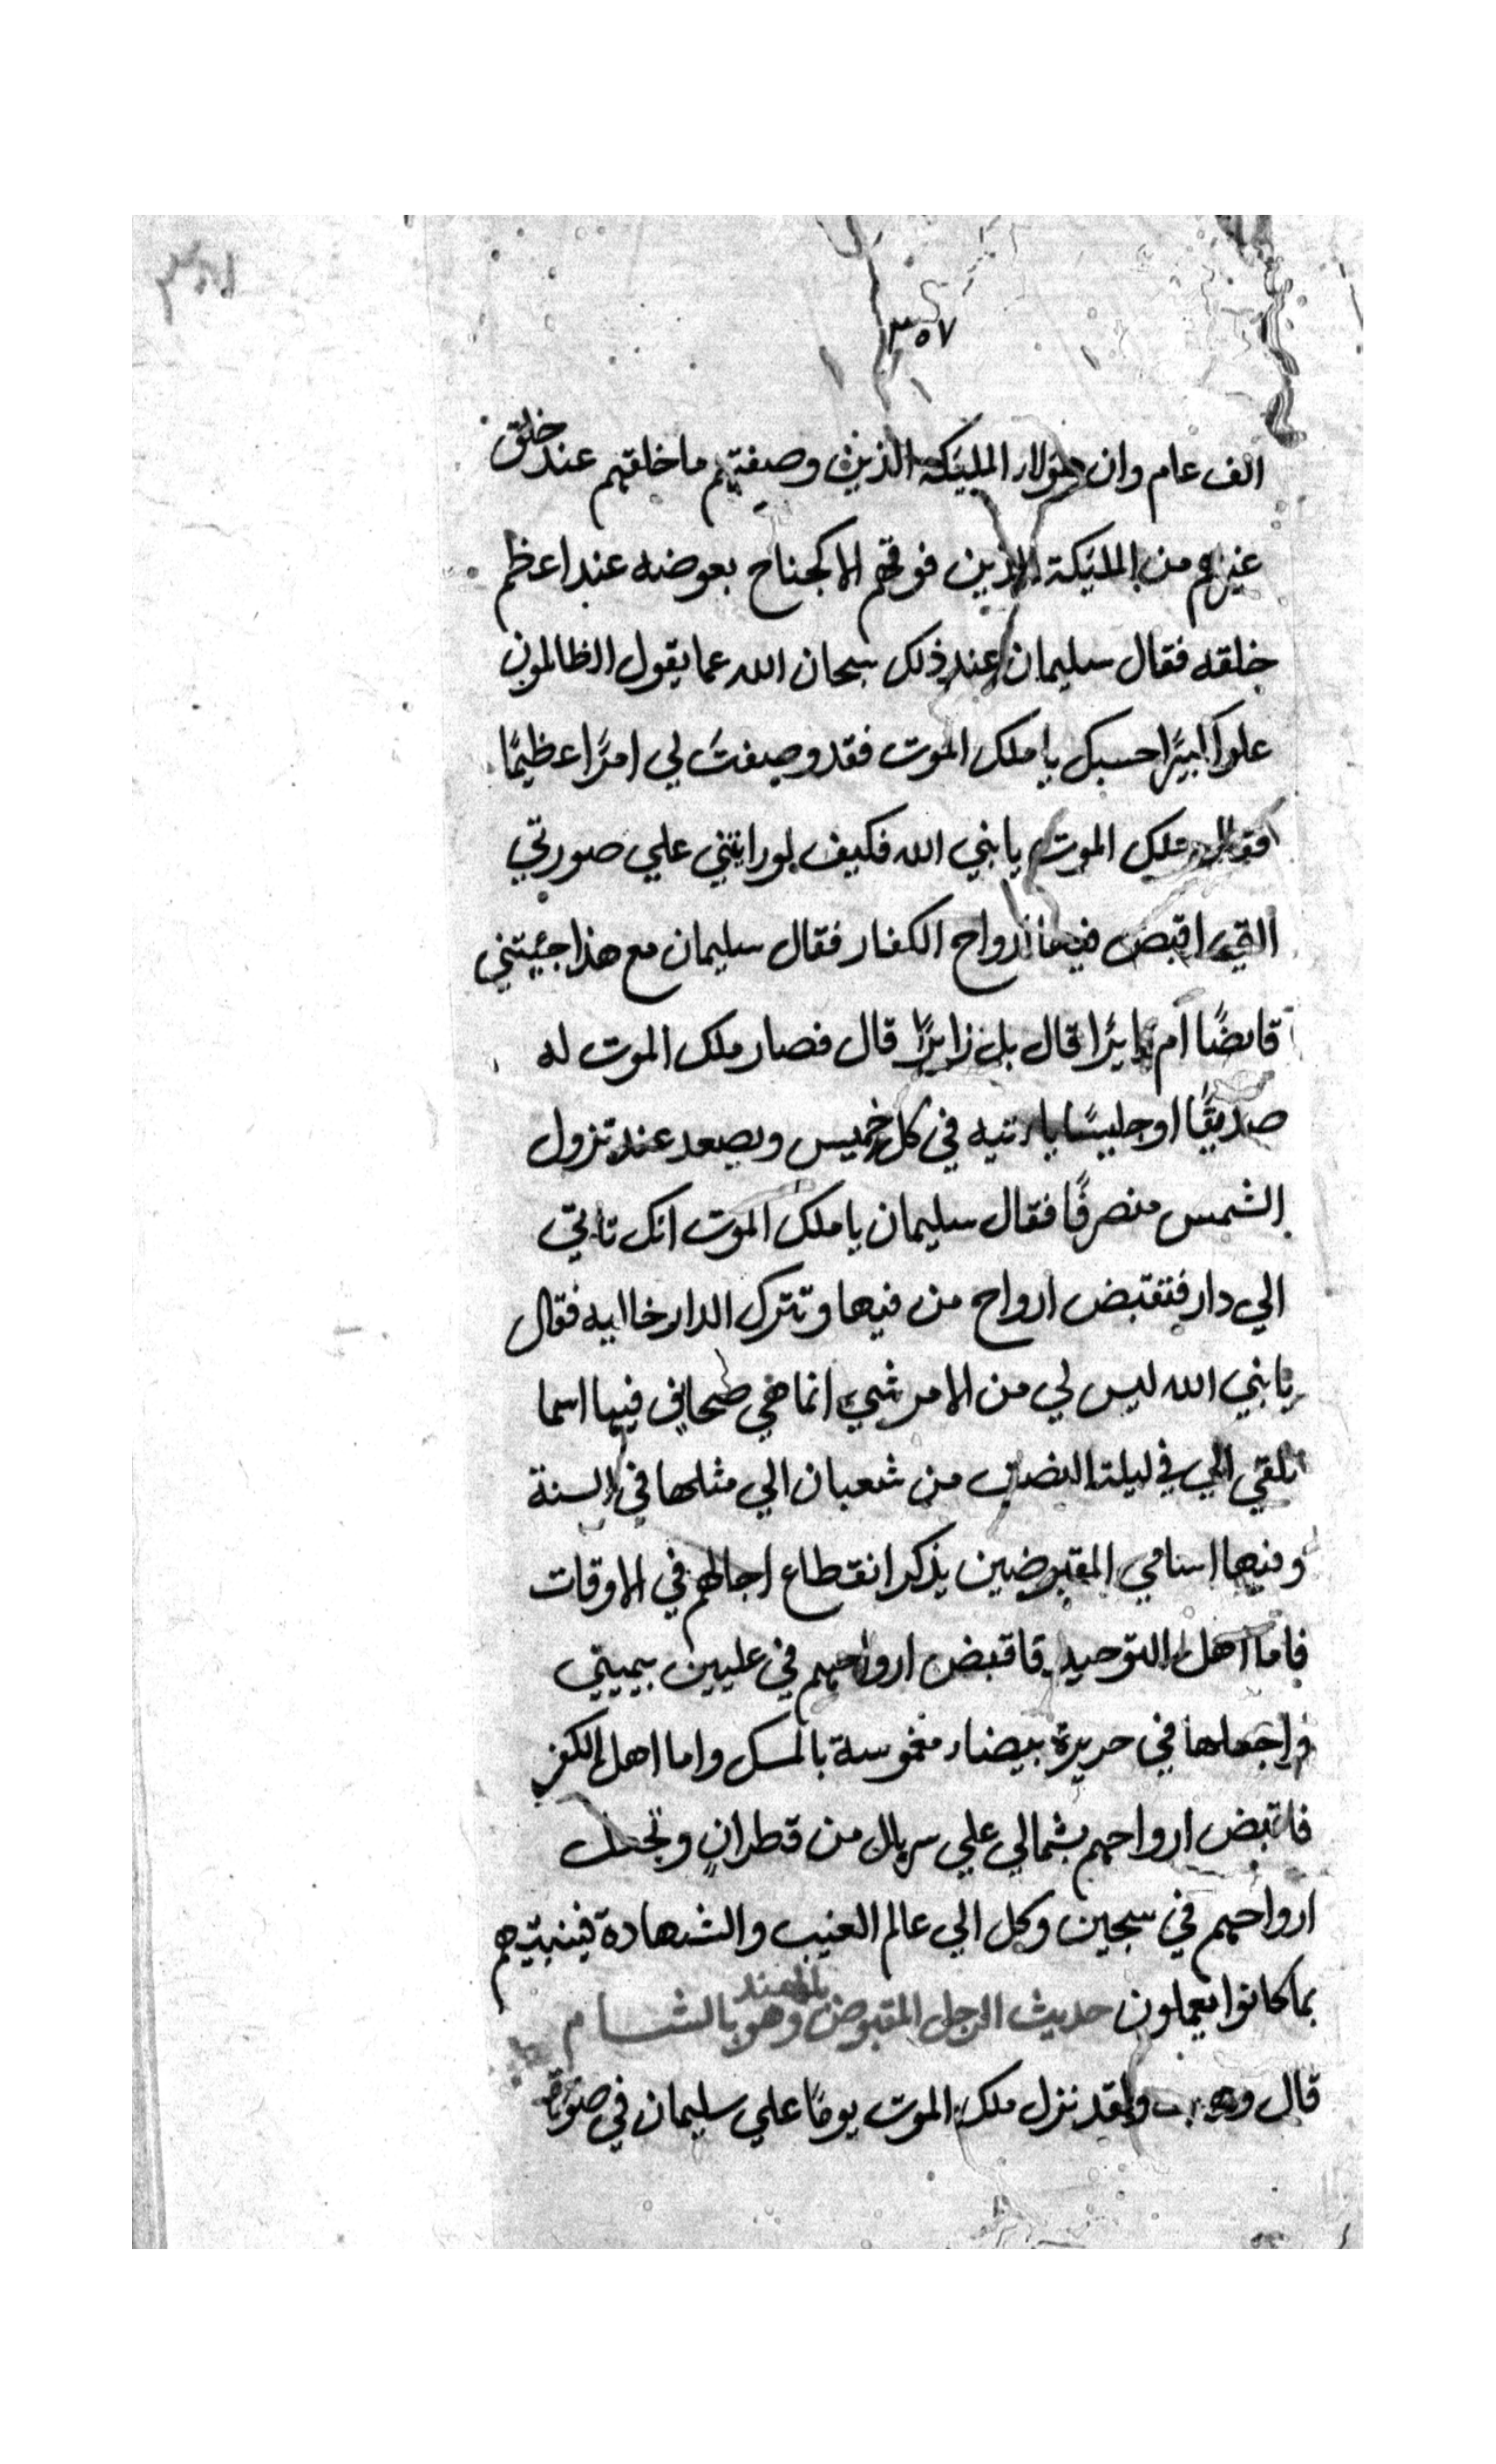 ٣٥٧
الف عام وان هولاء المليكة الذين وصفتهم ما خلقهم عند خلق
غيرهم من المليكة الذين فوقهم الا كجناح بعوضه عند اعظم
خلقه فقال سليمان عند ذلك سبحان الله عما يقول الظالمون
علوا كبيرًا حسبك يا ملك الموت فقد وصفتَ لي امرًا عظيمًا
فقال ملك الموت يا نبي الله فكيف لو رايتني علي صورتي
التي اقبض فيها ارواح الكفار فقال سليمان مع هذا جئيتني
قابضًا ام زايرًا قال بل زايرًا قال فصار ملك الموت له
صديقًا وجليسًا ياءتيه في كل خميس ويصعد عند نزول
الشمس منصرفًا فقال سليمان يا ملك الموت انك تاتي
الي دار فتقبض ارواح من فيها وتترك الدار خاليه فقال
يا نبي الله ليس لي من الامر شيء انما هي صحايف فيها اسما
تلقي الي في ليلة النصف من شعبان الي مثلها في السنة
وفيها اسامي المقبوضين يذكر انقطاع اجالهم في الاوقات
فاما اهل التوحيد فاقبض ارواحهم في عليين بيميني
واجعلها في حريرة بيضاء مغموسة بالمسك واما اهل الكفر
فاقبض ارواحهم بشمالي علي سربال من قطران وتجعل
ارواحهم في سجين وكل الي عالم الغيب والشهادة فينبيهم
بما كانوا يعملون حديث الرجل المقبوض بالهند وهو بالشام
قال وهب ولقد نزل ملك الموت يومًا علي سليمان في صورة